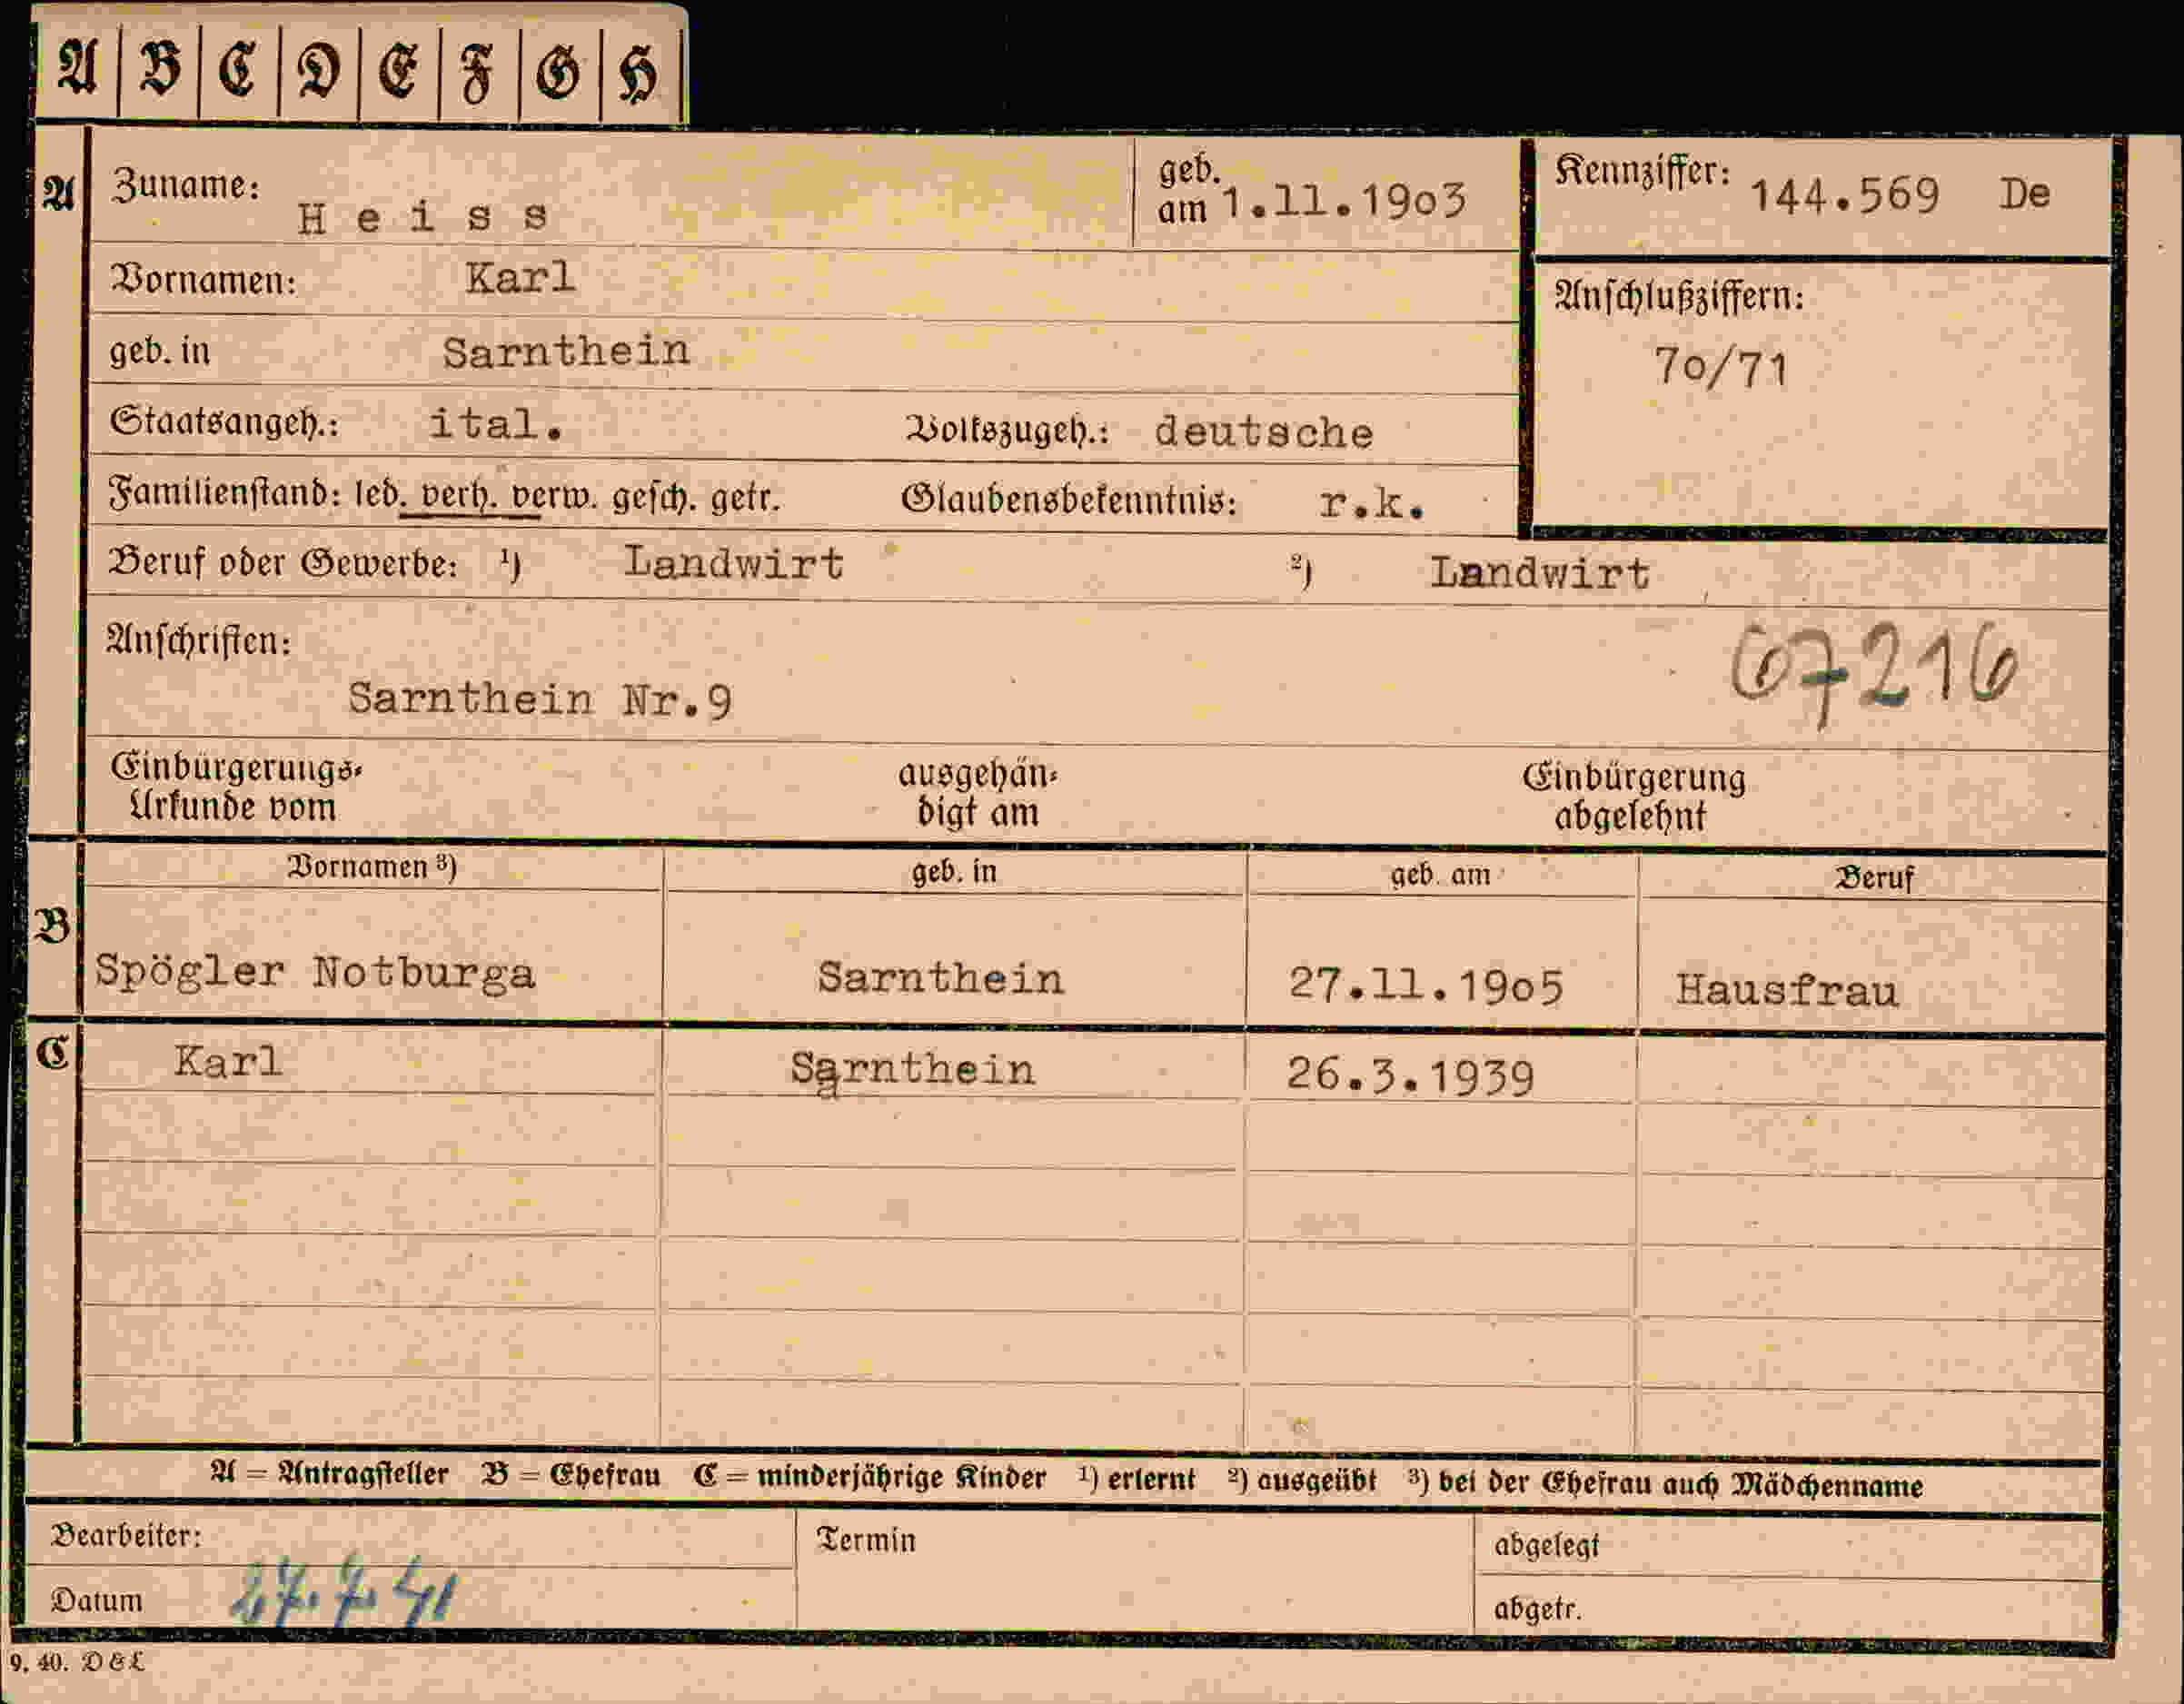 A B C D E F G H
A Zuname: Heiss geb. am 1.11.1903 Kennziffer: 144.569 De
Vornamen: Karl
Anschlußziffern:
geb. in Sarnthein
70/71
Staatsangeh.: ital. Volkszugeh.: deutsche
Familienstand: led. verh. verw. gesch. getr. Glaubensbekenntnis: r.k.
Beruf oder Gewerbe: ¹) Landwirt ²) Landwirt
Anschriften:
67216
Sarnthein Nr.9
Einbürgerungs- ausgehän- Einbürgerung
Urkunde vom digt am abgelehnt
Vornamen ³) geb. in geb. am Beruf
B
Spögler Notburga Sarnthein 27.11.1905 Hausfrau
C Karl Sarnthein 26.3.1939
A = Antragsteller B = Ehefrau C = minderjährige Kinder ¹) erlernt ²) ausgeübt ³) bei der Ehefrau auch Mädchenname
Bearbeiter: Termin abgelegt
Datum 27.7.41 abgetr.
9. 40. D&L